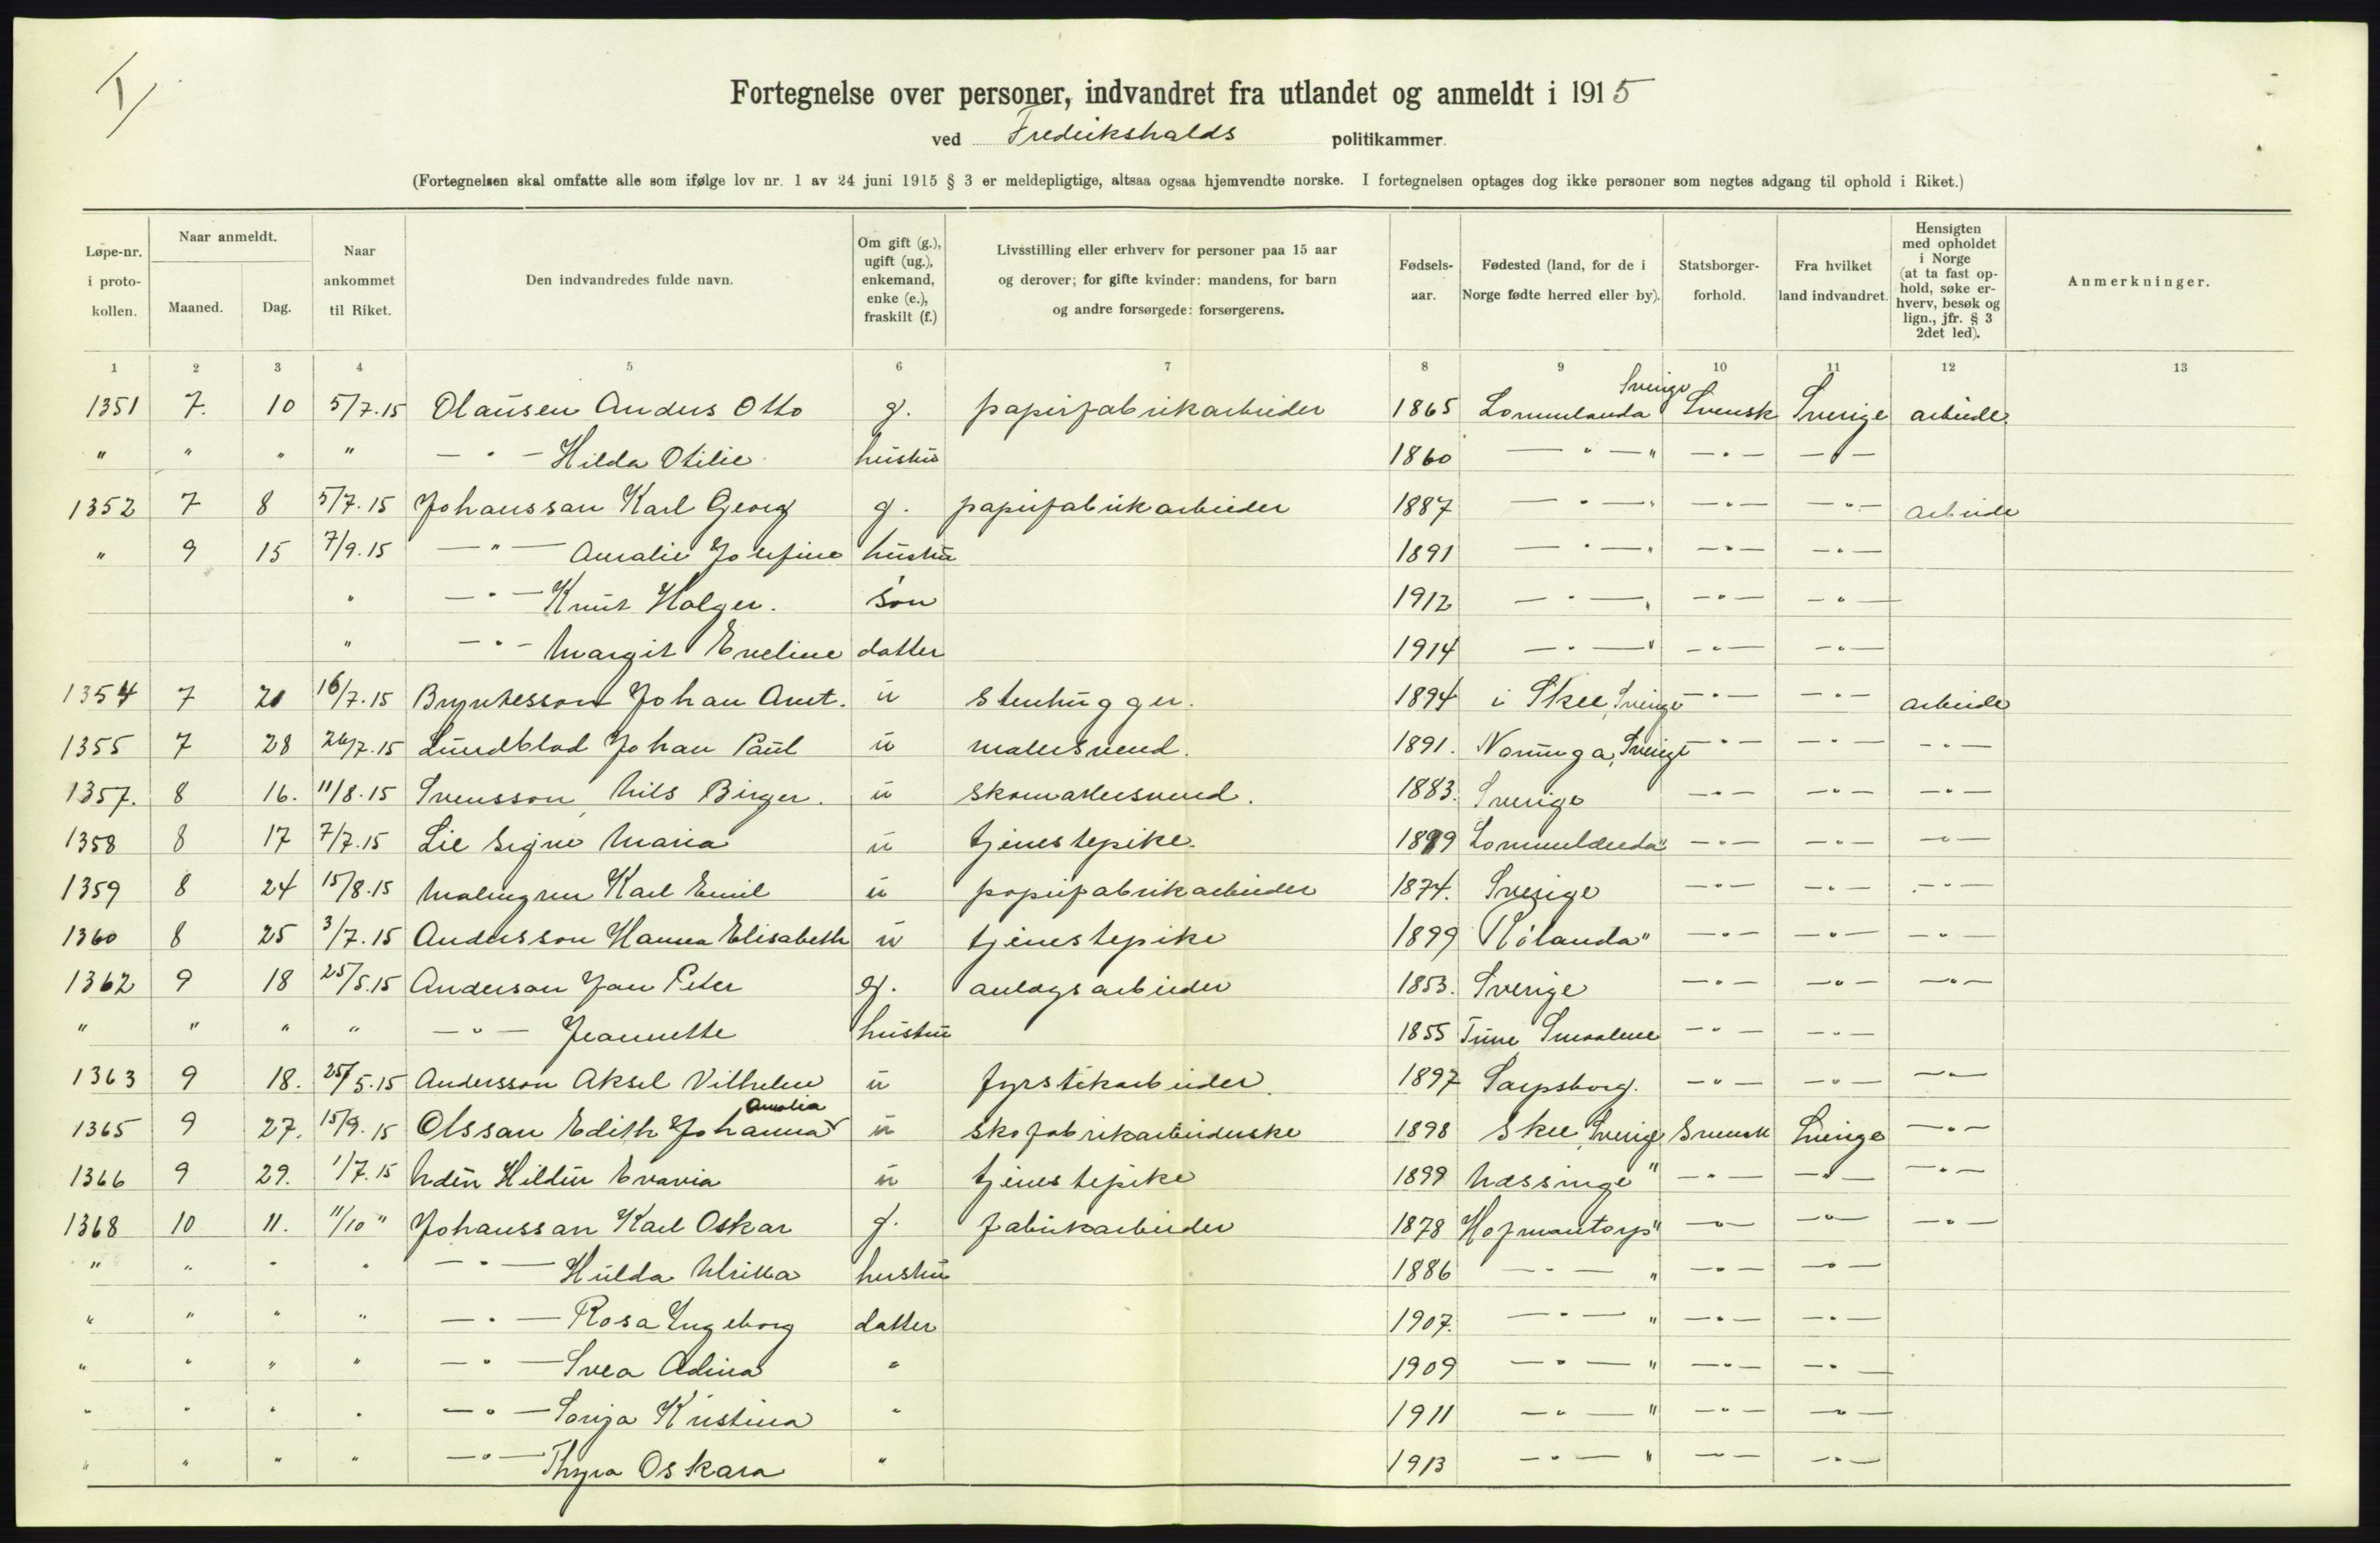 I/
Fortegnelse over personer, indvandret fra utlandet og anmeldt i 1915
ved Fredrikshalds politikammer.
(Fortegnelsen skal omfatte alle som ifølge lov nr. 1 av 24 juni 1915 § 3 er meldepligtige, altsaa ogsaa hjemvendte norske. I fortegnelsen optages dog ikke personer som negtes adgang til ophold i Riket.)
Løpe-nr. i proto-kollen. Naar anmeldt. Maaned. Dag. Naar ankommet til Riket. Den indvandredes fulde navn. Om gift (g.), ugift (ug.), enkemand, enke (e.), fraskilt (f.) Livsstilling eller erhverv for personer paa 15 aar og derover; for gifte kvinder: mandens, for barn og andre forsørgede: forsørgerens. Fødsels-aar. Fødested (land, for de i Norge fødte herred eller by). Statsborger-forhold. Fra hvilket land indvandret. Hensigten med opholdet i Norge (at ta fast op-hold, søke er-hverv, besøk og lign., jfr. § 3 2det led). Anmerkninger.
1 2 3 4 5 6 7 8 9 10 11 12 13
1351 7. 10 5/7.15 Olausen Anders Otto g. papirfabrikarbeider 1865 Lommelanda Sverige Svensk Sverige arbeide.
" " " " — " — Hilda Otilie hustru 1860 — " — " — " — — " —
1352 7 8 5/7.15 Johanssan Karl Georg g. papirfabrikarbeider 1887 — " — " — " — — " — arbeide
" 9 15 7/9.15 — " — Amalie Josefine hustru 1891 — " — " — " — — " —
" — " — Knut Holger. søn 1912 — " — " — " — — " —
" — " — Margit Eveline datter 1914 — " — " — " — — " —
1354 7 20 16/7.15 Bryntesson Johan Arnt. u stenhugger. 1894 i Skee, Sverige — " — — " — arbeide
1355 7 28 26/7.15 Lundblad Johan Paul u malersvend. 1891. Norunga, Sverige — " — — " — — " —
1357. 8 16. 11/8.15 Svensson, Nils Birger. u skomakersvend. 1883. Sverige — " — — " — — " —
1358 8 17 7/7.15 Lie Signe Maria u tjenestepike. 1899 Lommelanda " — " — — " — — " —
1359 8 24 15/8.15 Malmgren Karl Emil u papirfabrikarbeider 1874. Sverige — " — — " — — " —
1360 8 25 3/7.15 Andersson Hanna Elisabeth u tjenestepike 1899 Rölanda " — " — — " — — " —
1362 9 18 25/5.15 Anderson Jan Peter g. anlægsarbeider 1853. Sverige — " — — " — — " —
" " " " — " — Jeannette hustru 1855 Tune Smaalene — " — — " —
1363 9 18. 25/5.15 Andersson Aksel Vilhelm u fyrstikarbeider. 1897 Sarpsborg. — " — — " — — " —
1365 9 27. 15/9.15 Olssan Edith Johanna Amalia u skofabrikarbeiderske 1898 Skee, Sverige Svensk Sverige — " —
1366 9 29. 1/7.15 Udén Hildur u tjenestepike 1899 Næssinge " — " — — " — — " —
1368 10 11. 11/10 " Johanssan Karl Oskar g. fabrikarbeider 1878 Hofmantorp " — " — — " — — " —
" " " " — " — Hulda Ulrikka hustru 1886 — " — " — " — — " —
" " " " — " — Rosa Ingeborg datter 1907. — " — " — " — — " —
" " " " — " — Svea Adina " 1909 — " — " — " — — " —
" " " " — " — Sonja Kristina " 1911 — " — " — " — — " —
" " " " — " — Thyra Oskara " 1913 — " — " — " — — " —